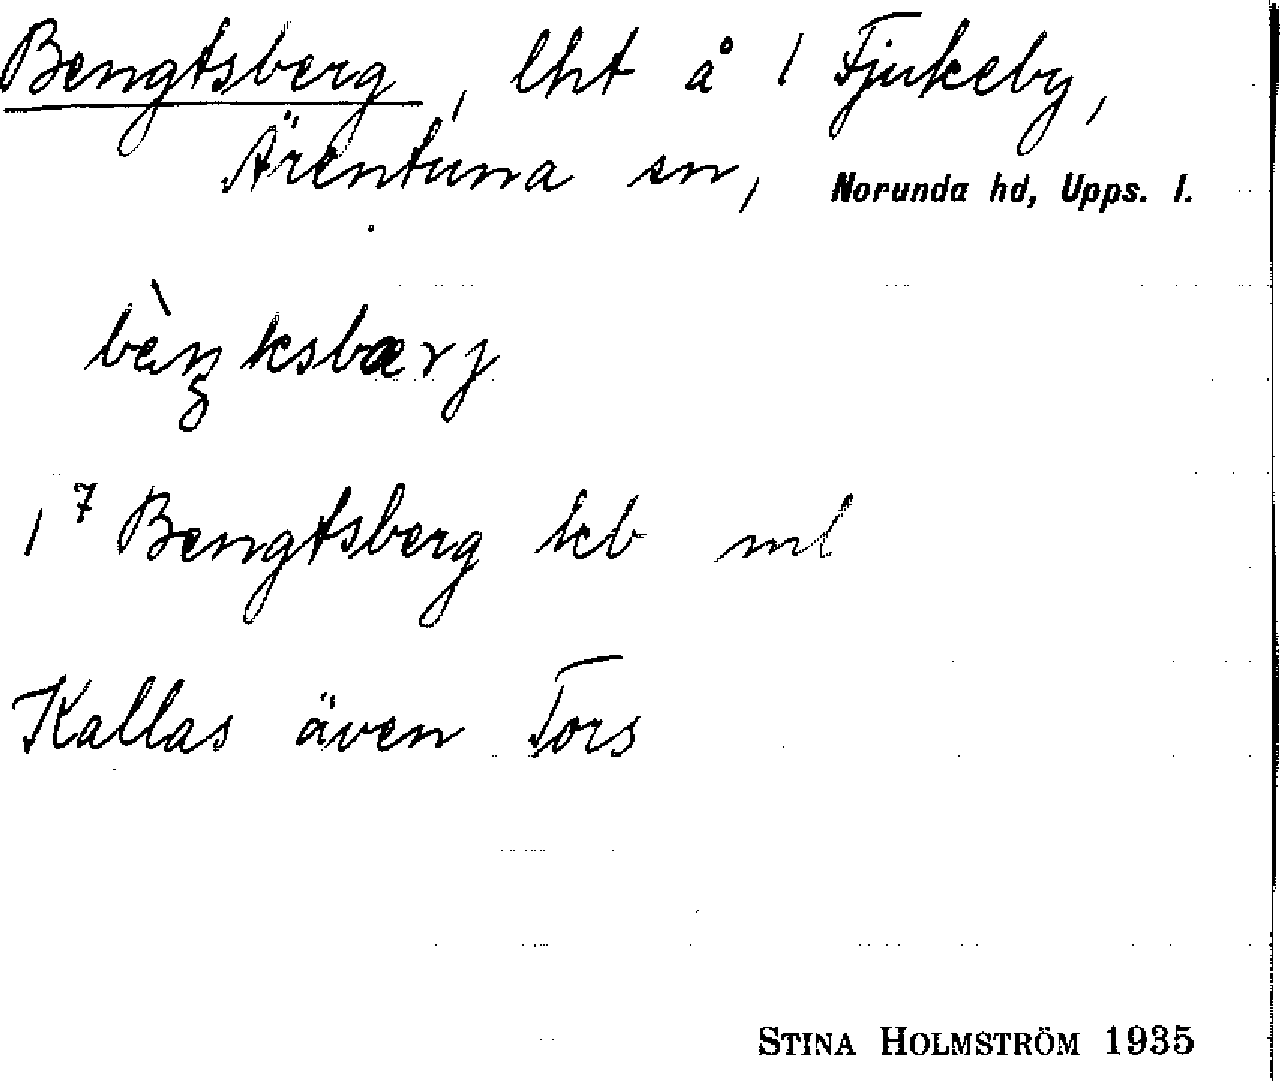 Bengtsberg, lht å 1 Fjukeby,
Ärentuna sn, Norunda hd, Upps. l.
bèŋksbærj
1⁷ Bengtsberg kb ml
Kallas även Tors
STINA HOLMSTRÖM 1935